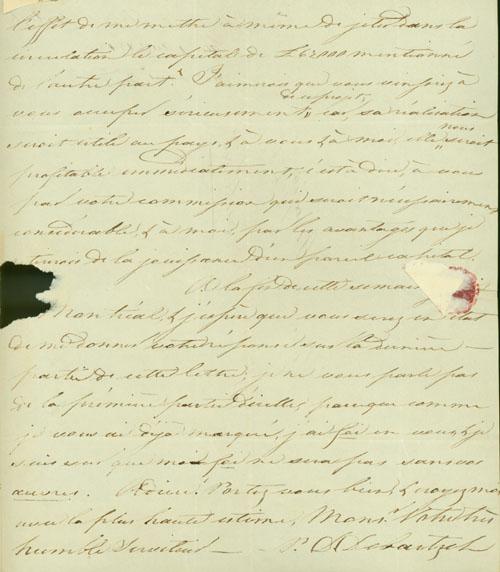 l'effet de me mettre à même de jeter dans la
circulation le capital de £62000 mentionné
de l'autre part. J'aimerais que vous vinssiez à
vous occuper sérieusement, car sa réalisation
de ce projet,
serait utile au pays, & à vous & à moi, elle nous serait
profitable immédiatement; c'est à dire, à vous
par votre commission qui serait nécessairement
considérable, & à moi, par les avantages que je
de la jouissance d'un pareil capital.
A la fin de cette semaine
Montréal, & j'espère que vous serez en état
de me donner votre réponse sur la dernière
partie de cette lettre; je ne vous parle pas
de la première partie d'icelle, parceque comme
je vous ai déjà marqué, j'ai foi en vous, & je
suis sûr que ma foi ne sera pas sans vos
œuvres. Adieu! Portez vous bien, & croyez moi
avec la plus haute estime, Mons.r Votre très
humble Serviteur — P. D. Debartzch